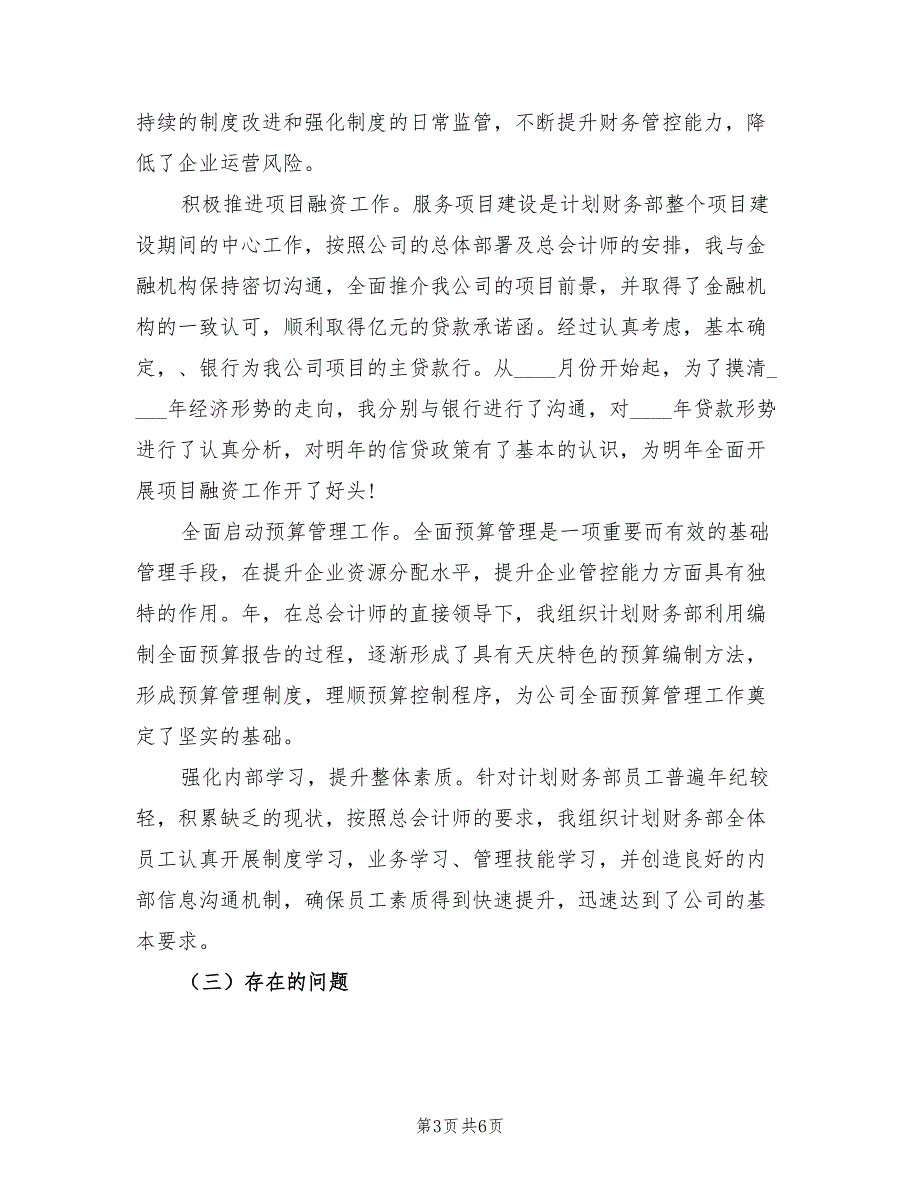 持续的制度改进和强化制度的日常监管，不断提升财务管控能力，降
低了企业运营风险。
积极推进项目融资工作。服务项目建设是计划财务部整个项目建
设期间的中心工作，按照公司的总体部署及总会计师的安排，我与金
融机构保持密切沟通，全面推介我公司的项目前景，并取得了金融机
构的一致认可，顺利取得亿元的贷款承诺函。经过认真考虑，基本确
定，、银行为我公司项目的主贷款行。从____月份开始起，为了摸清_
___年经济形势的走向，我分别与银行进行了沟通，对____年贷款形势
进行了认真分析，对明年的信贷政策有了基本的认识，为明年全面开
展项目融资工作开了好头!
全面启动预算管理工作。全面预算管理是一项重要而有效的基础
管理手段，在提升企业资源分配水平，提升企业管控能力方面具有独
特的作用。年，在总会计师的直接领导下，我组织计划财务部利用编
制全面预算报告的过程，逐渐形成了具有天庆特色的预算编制方法，
形成预算管理制度，理顺预算控制程序，为公司全面预算管理工作奠
定了坚实的基础。
强化内部学习，提升整体素质。针对计划财务部员工普遍年纪较
轻，积累缺乏的现状，按照总会计师的要求，我组织计划财务部全体
员工认真开展制度学习，业务学习、管理技能学习，并创造良好的内
部信息沟通机制，确保员工素质得到快速提升，迅速达到了公司的基
本要求。
（三）存在的问题
第3页 共6页